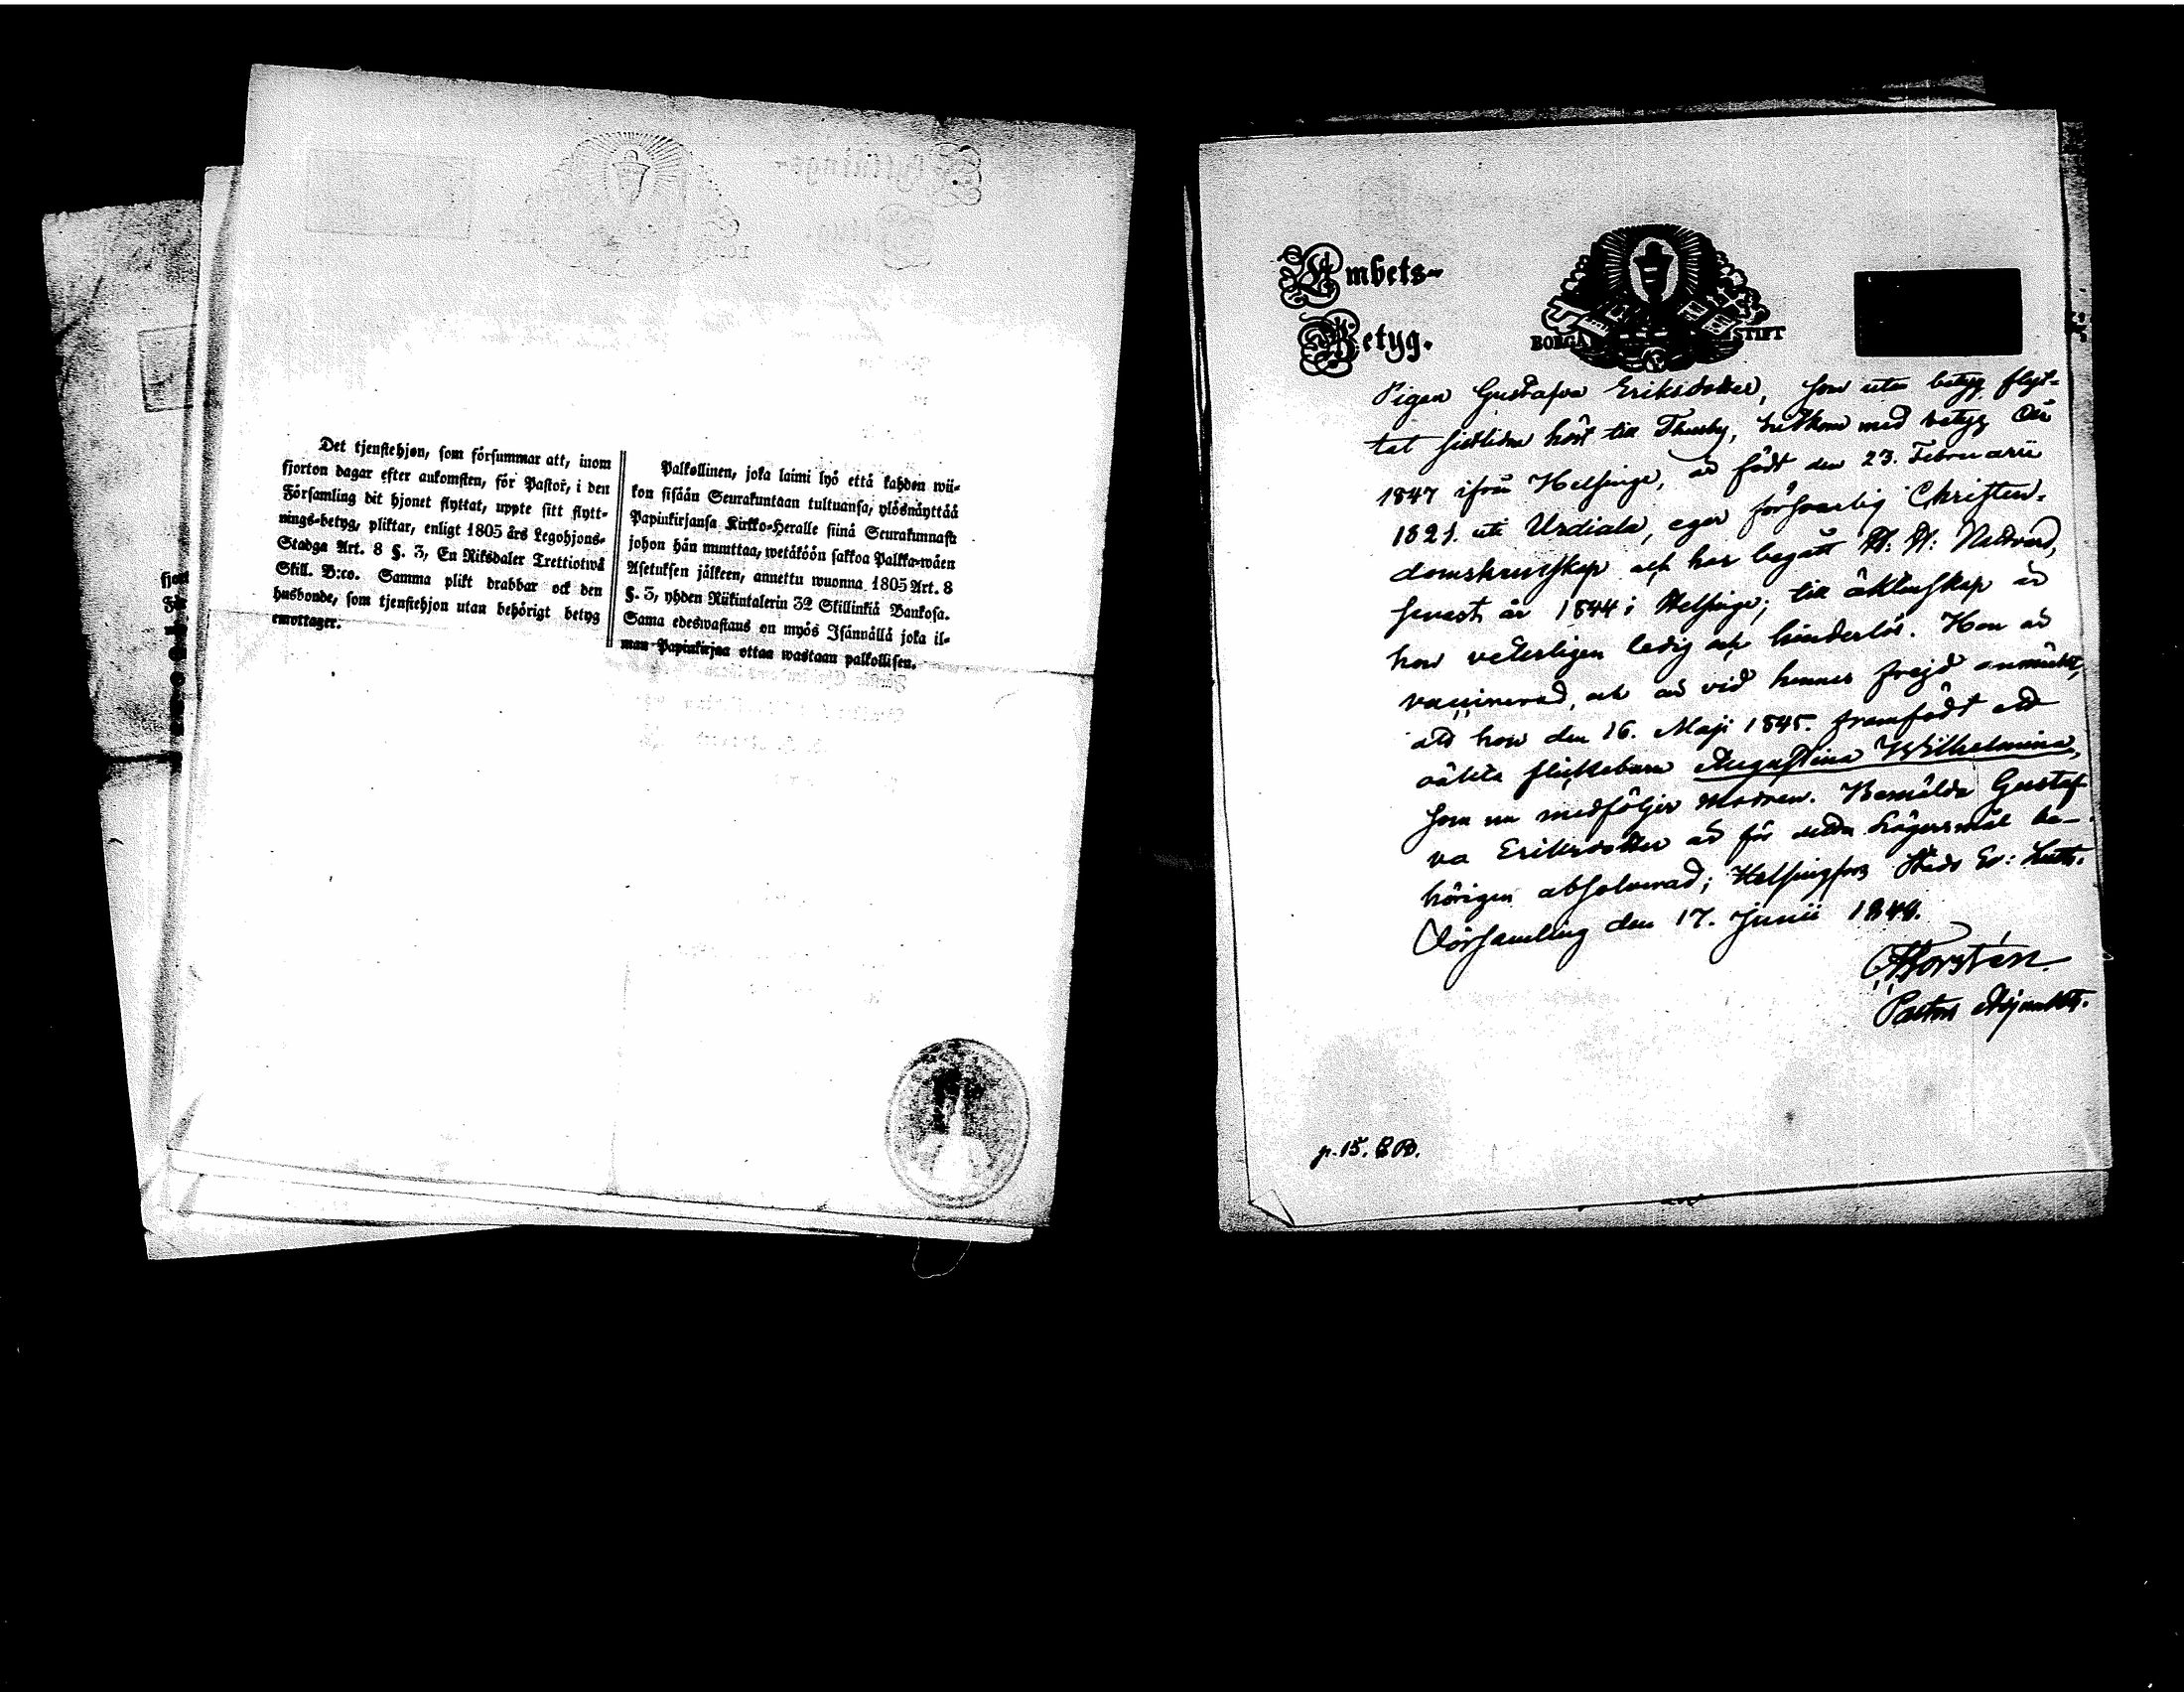 Det tjenstehjon, som försummar att, inom
fjorton dagar efter ankomsten, för Pastor, i den
Församling dit hjonet flyttat, uppte sitt flytt-
nings-betyg, pliktar, enligt 1805 års Legohjons-
Stadga Art. 8 §. 3, En Riksdaler Trettiotwå
Skill. B:co. Samma plikt drabbar ock den
husbonde, som tjenstehjon utan behörigt betyg
emottager.
Palkollinen, joka laimi lyö että kahden wii-
kon sisään Seurakuntaan tultuansa, ylösnäyttää
Papinkirjansa Kirkko-Herralle siinä Seurakunnasa
johon hän muuttaa, wetäköön sakkoa Palkka-wäen
Asetuksen jälkeen, annettu wuonna 1805 Art. 8
§. 3, yhden Riikintalerin 32 Skillinkiä Bankosa.
Sama edeswastaus on myös Isännällä joka il-
man Papinkirjaa ottaa wastaan palkollisen.
Embets-
Betyg.
BORGÅ STIFT
Pigan Gustafva Eriksdotter, som utan betyg flyt-
tat sistlidne höst till Thusby, hitkom med betyg år
1847 ifrån Helsinge, är född den 23. Februarii
1821. uti Urdiala, eger försvarlig Christen-
domskunskap och har begått H: H: Nattvard,
senast år 1844 i Helsinge; till äktenskap är
hon veterligen ledig och hinderlös. Hon är
vaccinerad, och är vid hennes frejd anmärkt,
att hon den 16. Maji 1845. framfödt ett
oäkta flickebarn Augustina Wilhelmina,
som nu medföljer modren. Bemälda Gustaf-
va Eriksdotter är för detta lägersmål be-
hörigen absolverad; Helsingfors Stads Ev: Luth.
Församling den 17. Junii 1848.
Forstén.
Pastors Adjunkt.
p. 15.